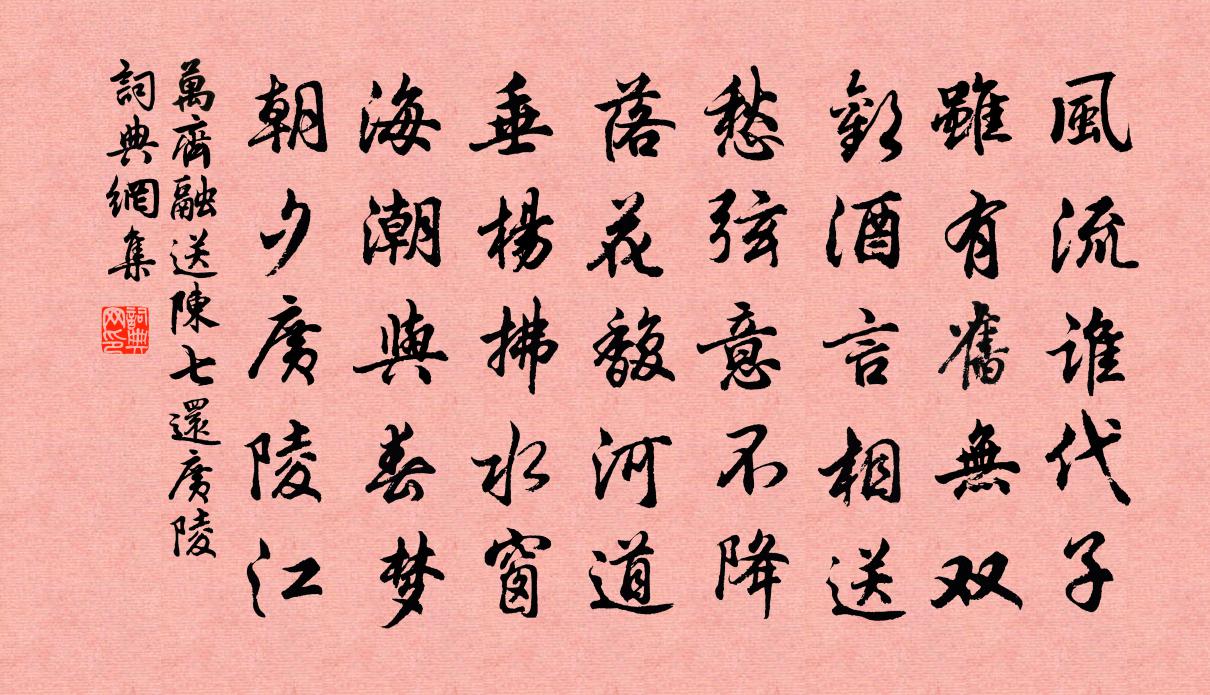 風流誰代子
雖有舊無双
歡酒言相送
愁弦意不降
落花馥河道
垂楊拂水窗
海潮與春梦
朝夕廣陵江
萬齊融送陳七還廣陵
詞典網集
詞典网印